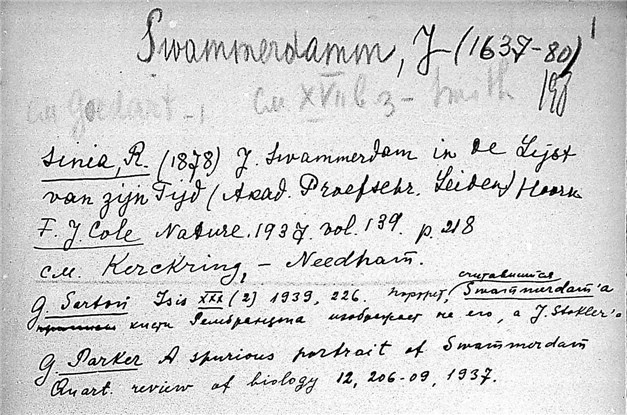 Swammerdamm, J (1637-80)
см Goedart -, см XVII b 3 - Smith
Sinia, R. (1878) J. Swammerdam in de Lijst
van zijn Tijd (Akad. Proefschr. Leiden) Hoorn
F. J. Cole Nature. 1937. vol. 139. p. 218
см. Kerckring, - Needham.
G. Sarton Isis XXX (2) 1939, 226. Портрет, считавшийся Swammerdam'a
кисти Рембрандта изображает не его, а J. Stokler'a
G. Parker A spurious portrait of Swammerdam
Quart. review of biology 12, 206-09, 1937.